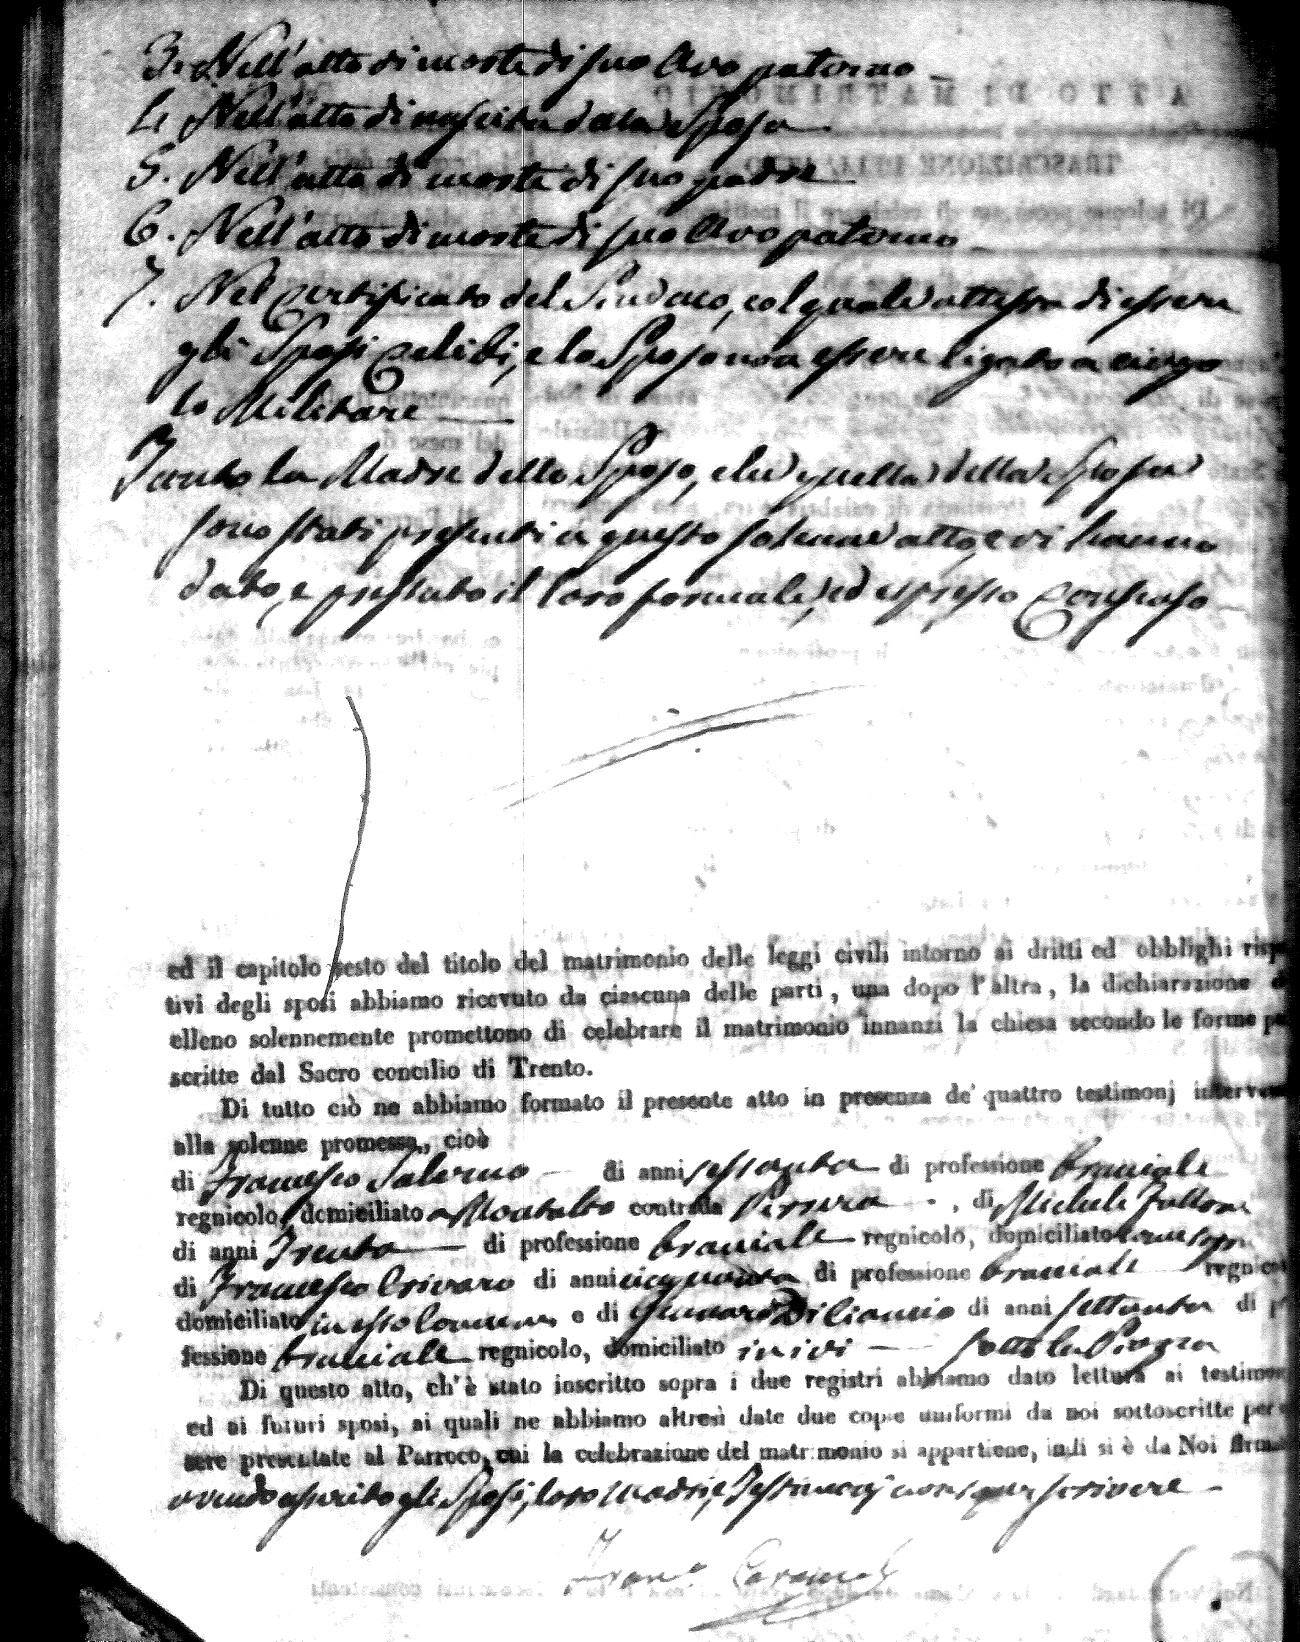 3. Nell'atto di morte di suo Avo paterno
4. Nell'atto di nascita della Sposa
5. Nell'atto di morte di suo padre
6. Nell'atto di morte di suo Avo paterno
7. Nel Certificato del Sindaco, col quale attesta di essere
gli Sposi Celibi, e lo Sposo non essere ligato a vingo
lo Militare
Tanto la Madre dello Sposo, che quella della Sposa
sono stati presenti a questo solenne atto, e vi hanno
dato, e prestato il loro formale, ed espresso Consenso
ed il capitolo sesto del titolo del matrimonio delle leggi civili intorno ai dritti ed obblighi rispe
tivi degli sposi abbiamo ricevuto da ciascuna delle parti, una dopo l'altra, la dichiarazione
elleno solennemente promettono di celebrare il matrimonio innanzi la chiesa secondo le forme
scritte dal Sacro concilio di Trento.
Di tutto ciò ne abbiamo formato il presente atto in presenza de' quattro testimonj interven
alla solenne promessa, cioè
di Francesco Salerno di anni sessanta di professione bracciale
regnicolo, domiciliato a Montalto contrada , di Michele
di anni Trenta di professione bracciale regnicolo, domiciliato come sopra
di Francesco Crivaro di anni cinquanta di professione bracciale regnico
domiciliato in esso Comune e di Gennaro di anni settanta di p
fessione bracciale regnicolo, domiciliato in ivi sotto la Piazza
Di questo atto, ch'è stato inscritto sopra i due registri abbiamo dato lettura ai testimon
ed ai futuri sposi, ai quali ne abbiamo altresì date due copie uniformi da noi sottoscritte per
sere presentate al Parroco, cui la celebrazione del matrimonio si appartiene, indi si è da Noi firma
avendo asserito gli Sposi, loro Madri, e Testimonj non saper scrivere
Fran.